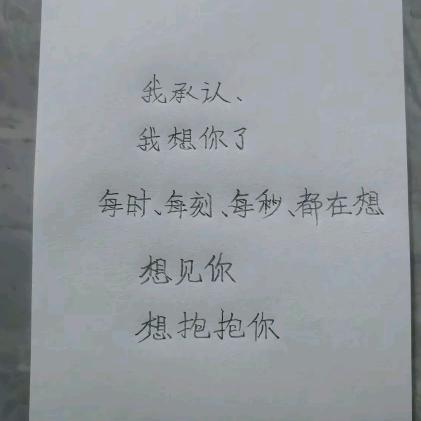 我承认、
我想你了
每时、每刻、每秒、都在想
想见你
想抱抱你